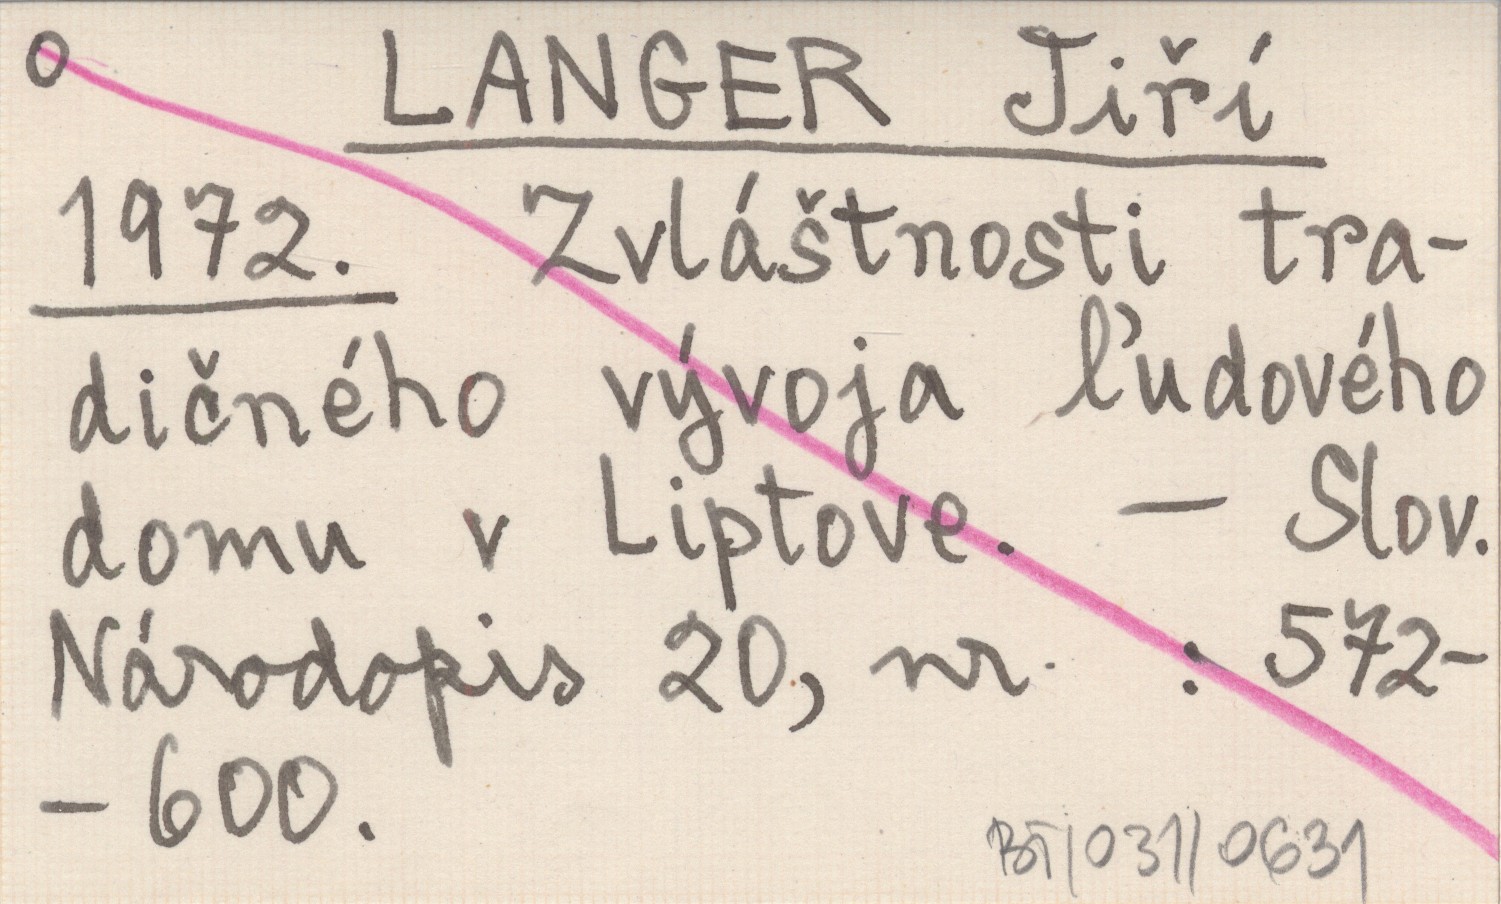 o LANGER Jiří
1972. Zvláštnosti tra-
dičného vývoja ľudového
domu v Liptove. — Slov.
Národopis 20, nr. : 572-
- 600.
BT/031/0631